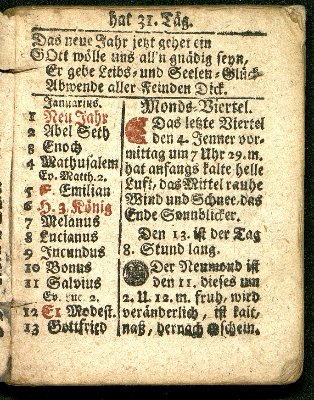 hat 31. Täg.
Das neue Jahr jetzt gehet ein
GOtt wölle uns all'n gnädig seyn,
Er gebe Leibs- und Seelen-Glück
Abwende aller Feinden Dick.
Januarius.
1 Neu Jahr
2 Abel Seth
3 Enoch
4 Mathusalem
Ev. Matth. 2.
5 F. Emilian
6 H. 3. König
7 Melanus
8 Lucianus
9 Jucundus
10 Bonus
11 Salvius
Ev. Luc. 2.
12 E1 Modest.
13 Gottfried
Monds-Viertel.
Das letzte Viertel
den 4. Jenner vor-
mittag um 7 Uhr 29. m.
hat anfangs kalte helle
Luft, das Mittel rauhe
Wind und Schnee, das
Ende Sonnblicker.
Den 13. ist der Tag
8. Stund lang.
Der Neumond ist
den 11. dieses um
2. U. 12. m. fruh, wird
veränderlich, ist kalt,
naß, hernach schein.